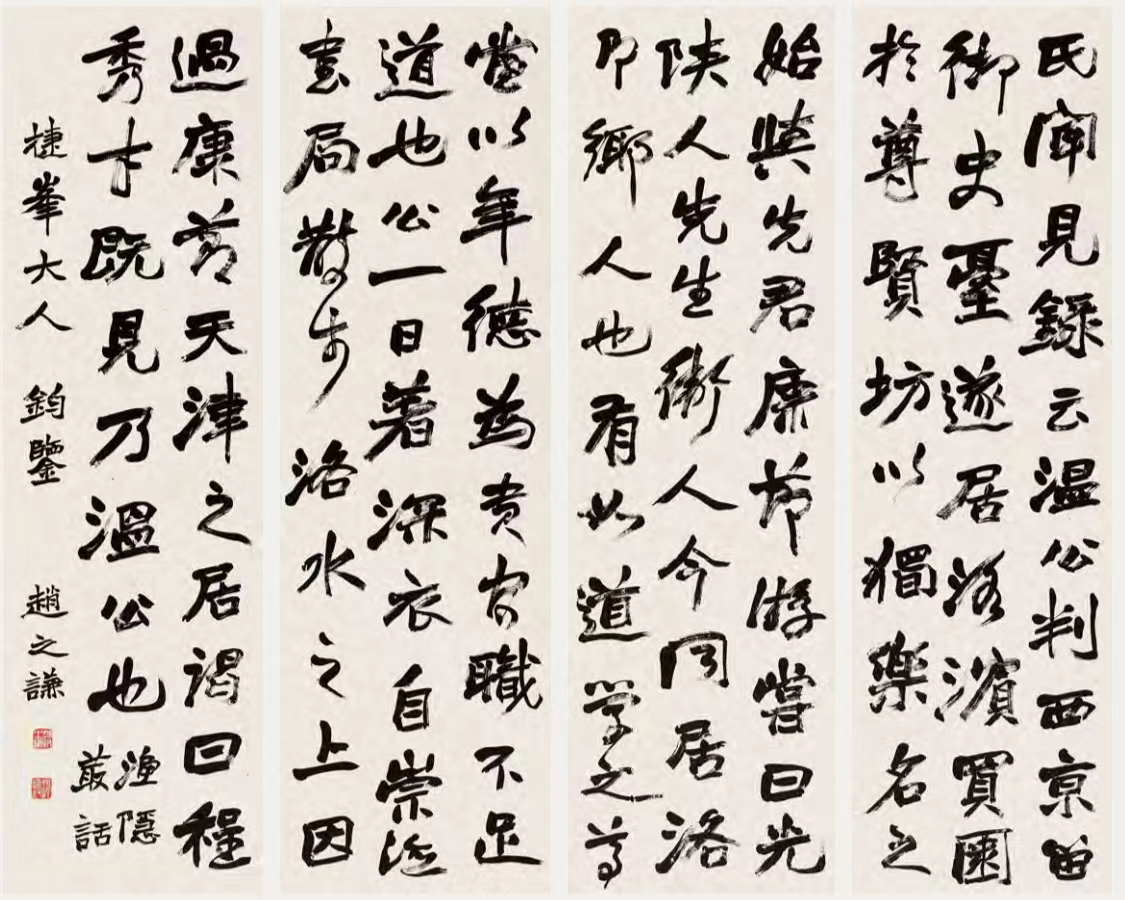 氏聞見錄云温公判西京留
御史臺遂居洛濱買園
於尊賢坊以獨樂名之
始與先君康節游嘗曰光
陝人先生衛人今同居洛
即鄉人也有如道學之尊
當以年德為貴官職不足
道也公一日著深衣自崇德
書局散步洛水之上因
過康節天津之居謁曰程
秀才既見乃溫公也
漁隱
叢話
捷峯大人 鈞鑒 趙之謙